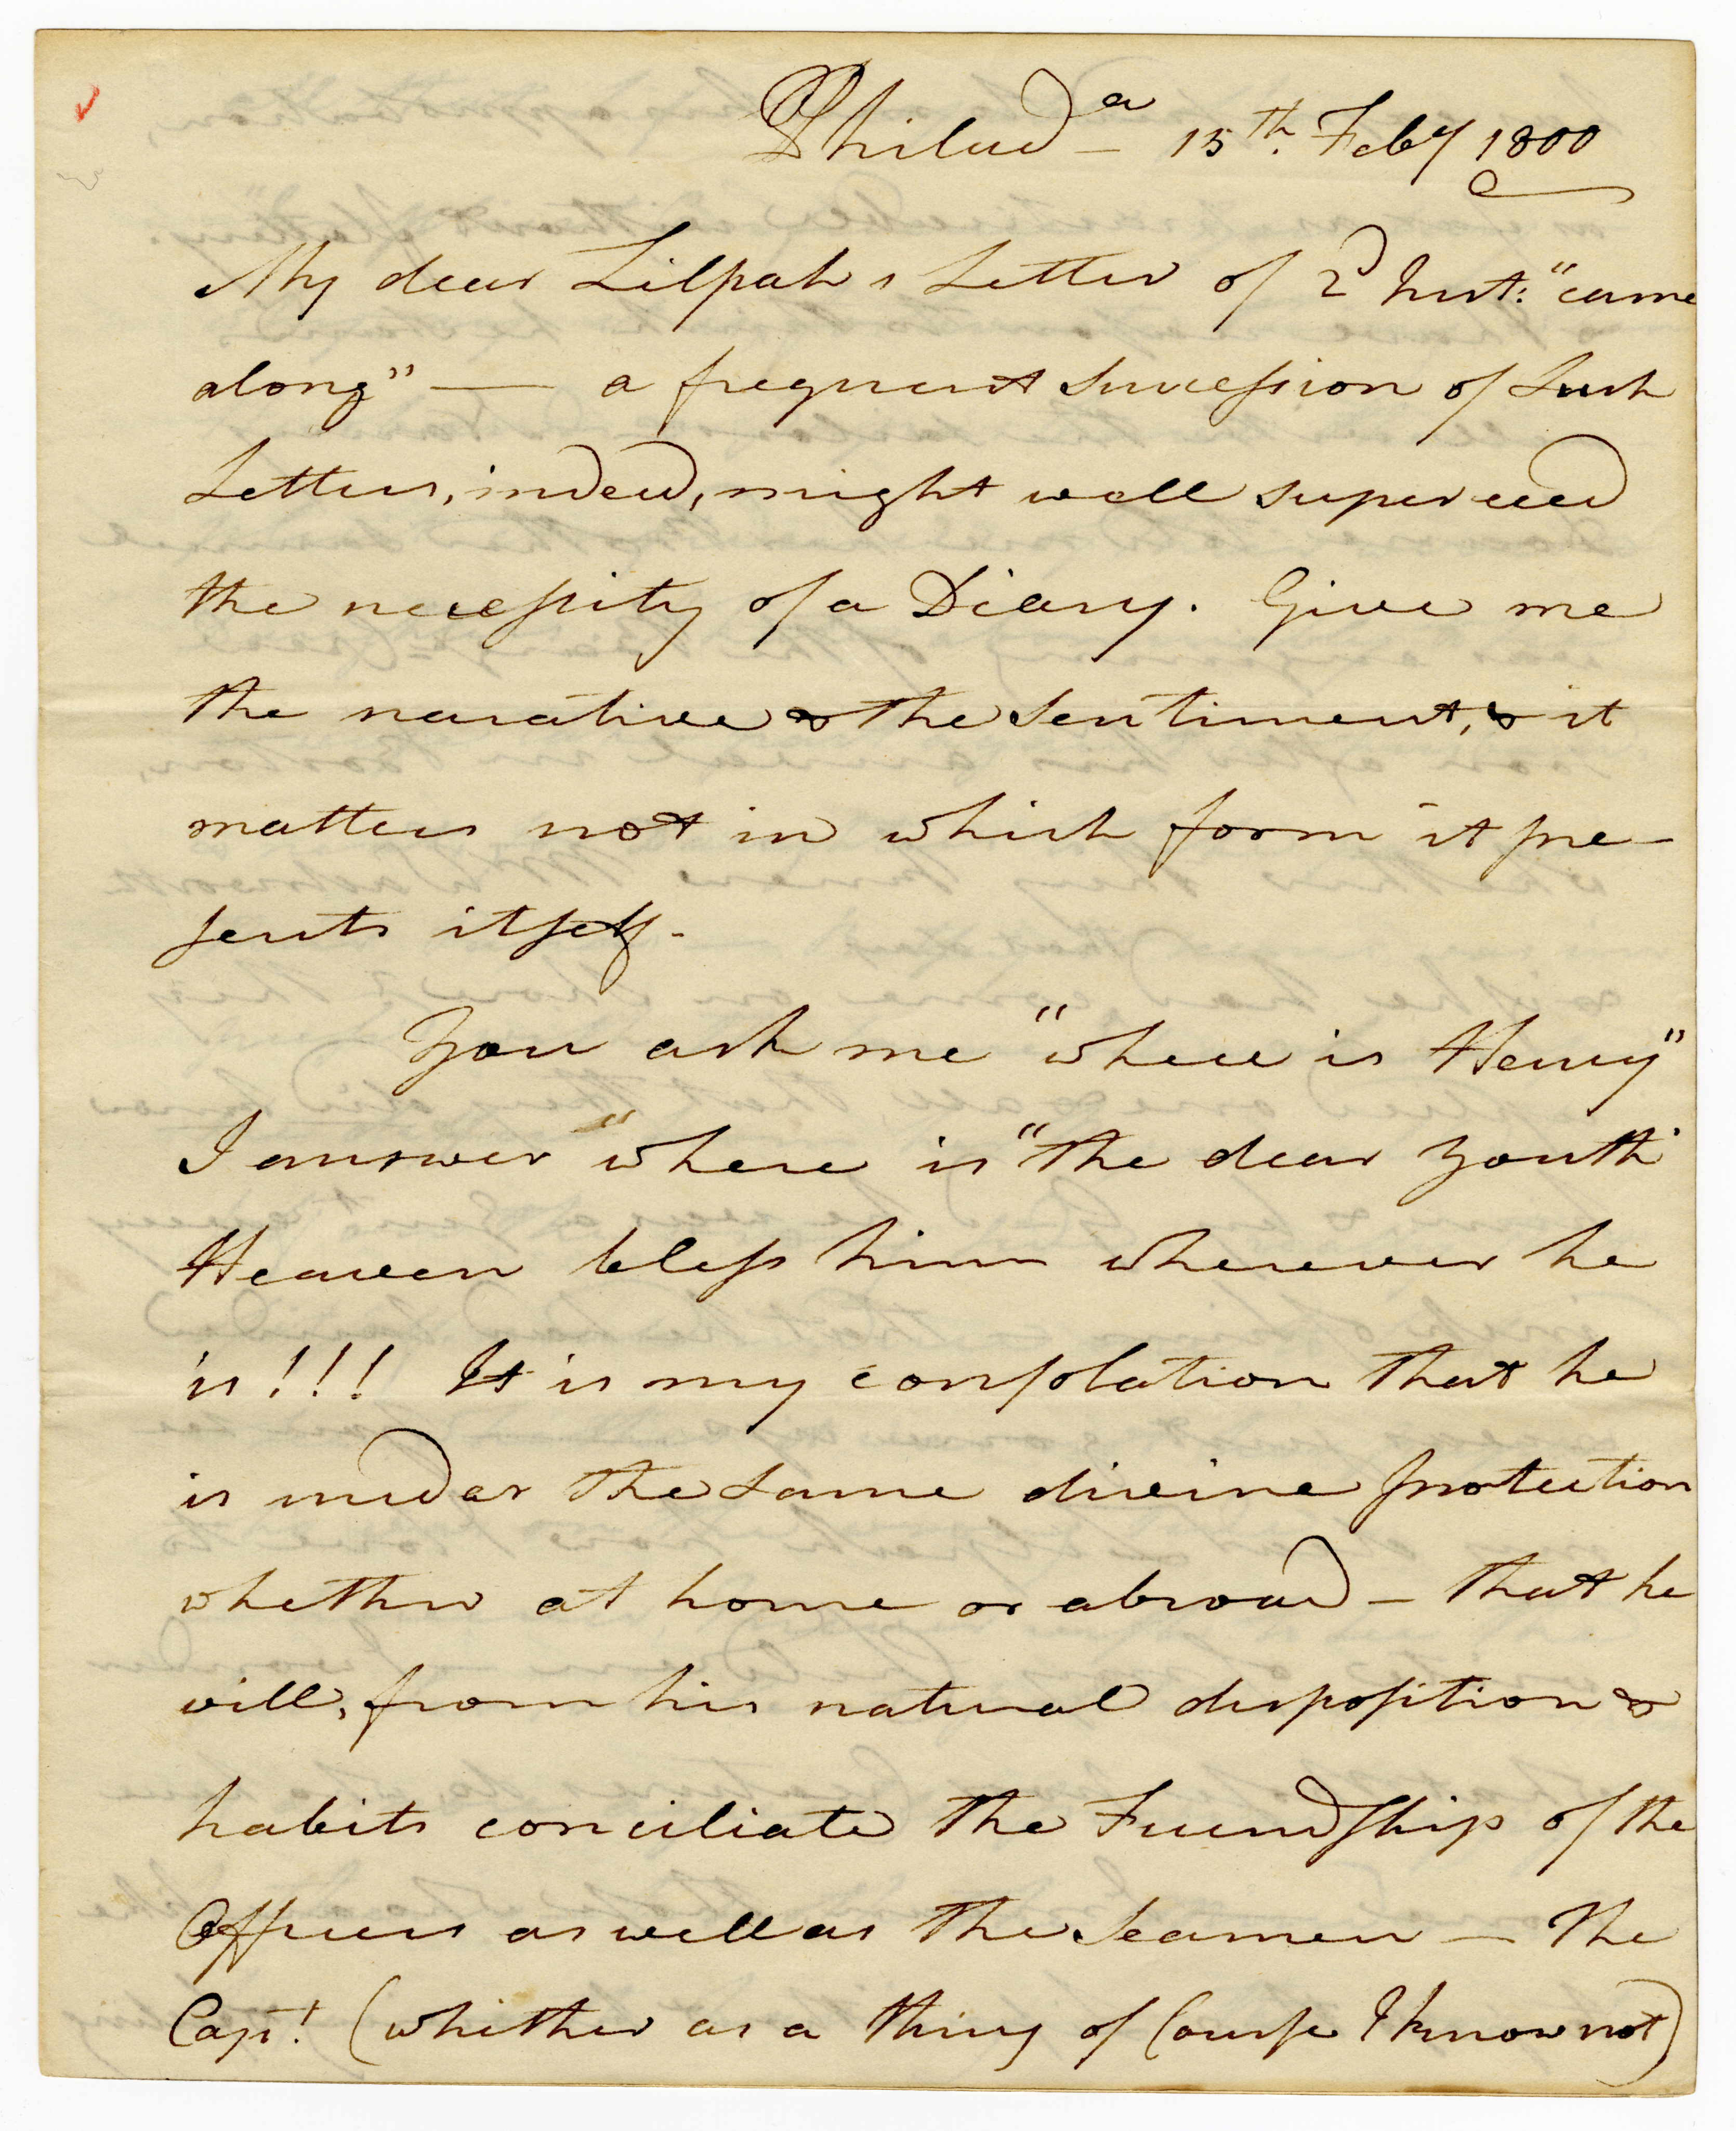 Philad<sup>a</sup> — 15<sup>th</sup>. Feby 1800
My dear Zilpah's Letter of 2<sup>d</sup> Inst: "came
along" — a frequent Succession of Such
Letters, indeed, might well superceed
the necessity of a Diary. Give me
the narative & the Sentiment, & it
matters not in which form it pre-
sents itself.
You ask me "where is Henry"
I answer "where is "the dear Youth"
Heaven bless him wherever he
is!!! It is my consolation that he
is under the Same divine protection
whether at home or abroad — that he
will, from his natural disposition &
habits conciliate the Friendship of the
Officers as well as the Seamen — The
Cap<sup>t</sup>. (whither as a thing of Course I know not)